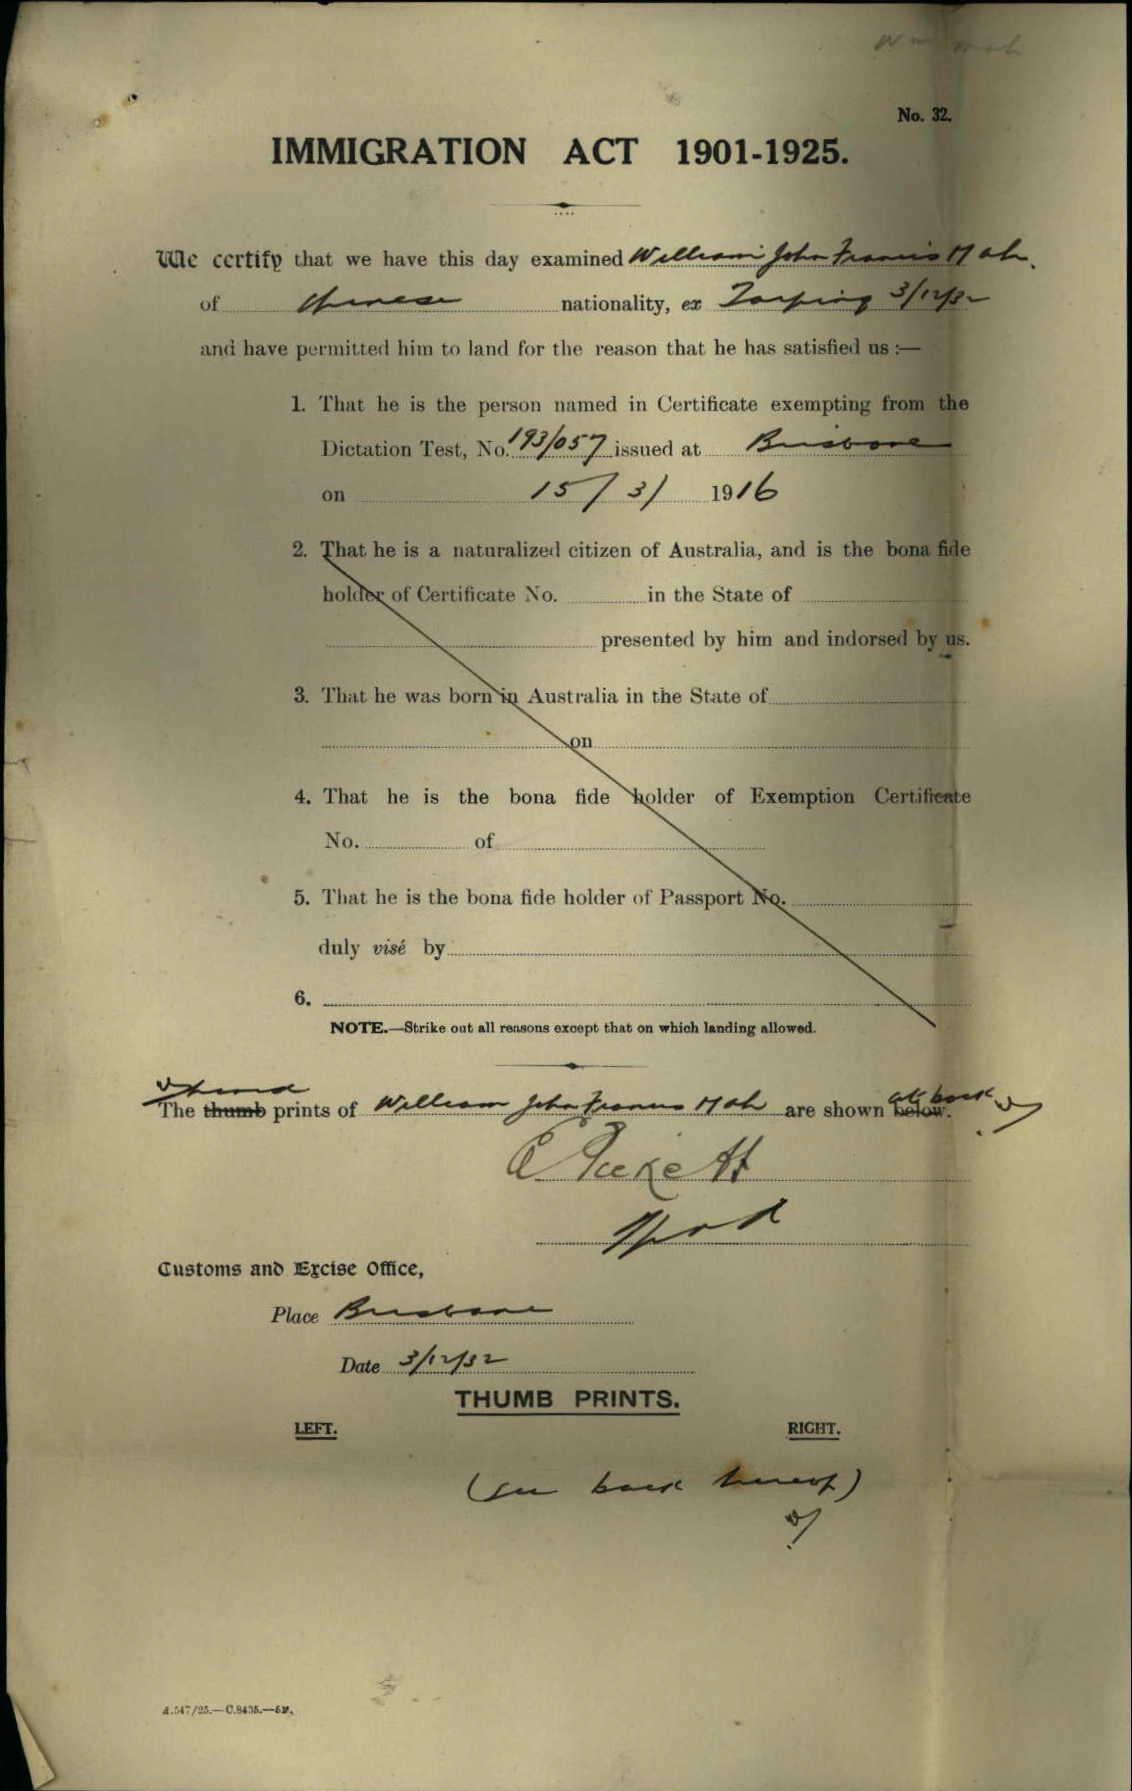 Wm Mah
No. 32.
IMMIGRATION ACT 1901-1925.
We certify that we have this day examined William John Francis Mah.
of Chinese nationality, ex Taiping 3/12/32
and have permitted him to land for the reason that he has satisfied us :—
1. That he is the person named in Certificate exempting from the
Dictation Test, No. 193/057 issued at Brisbane
on 15/3/ 1916
2. That he is a naturalized citizen of Australia, and is the bona fide
holder of Certificate No. in the State of
presented by him and indorsed by us.
3. That he was born in Australia in the State of
on
4. That he is the bona fide holder of Exemption Certificate
No. of
5. That he is the bona fide holder of Passport No.
duly visé by
6.
NOTE.—Strike out all reasons except that on which landing allowed.
hand
The thumb prints of William John Francis Mah are shown below. at back
Customs and Excise Office,
Place Brisbane
Date 3/12/32
THUMB PRINTS.
LEFT. RIGHT.
(see back hereof)
A.547/25.—C.8435.—5M.